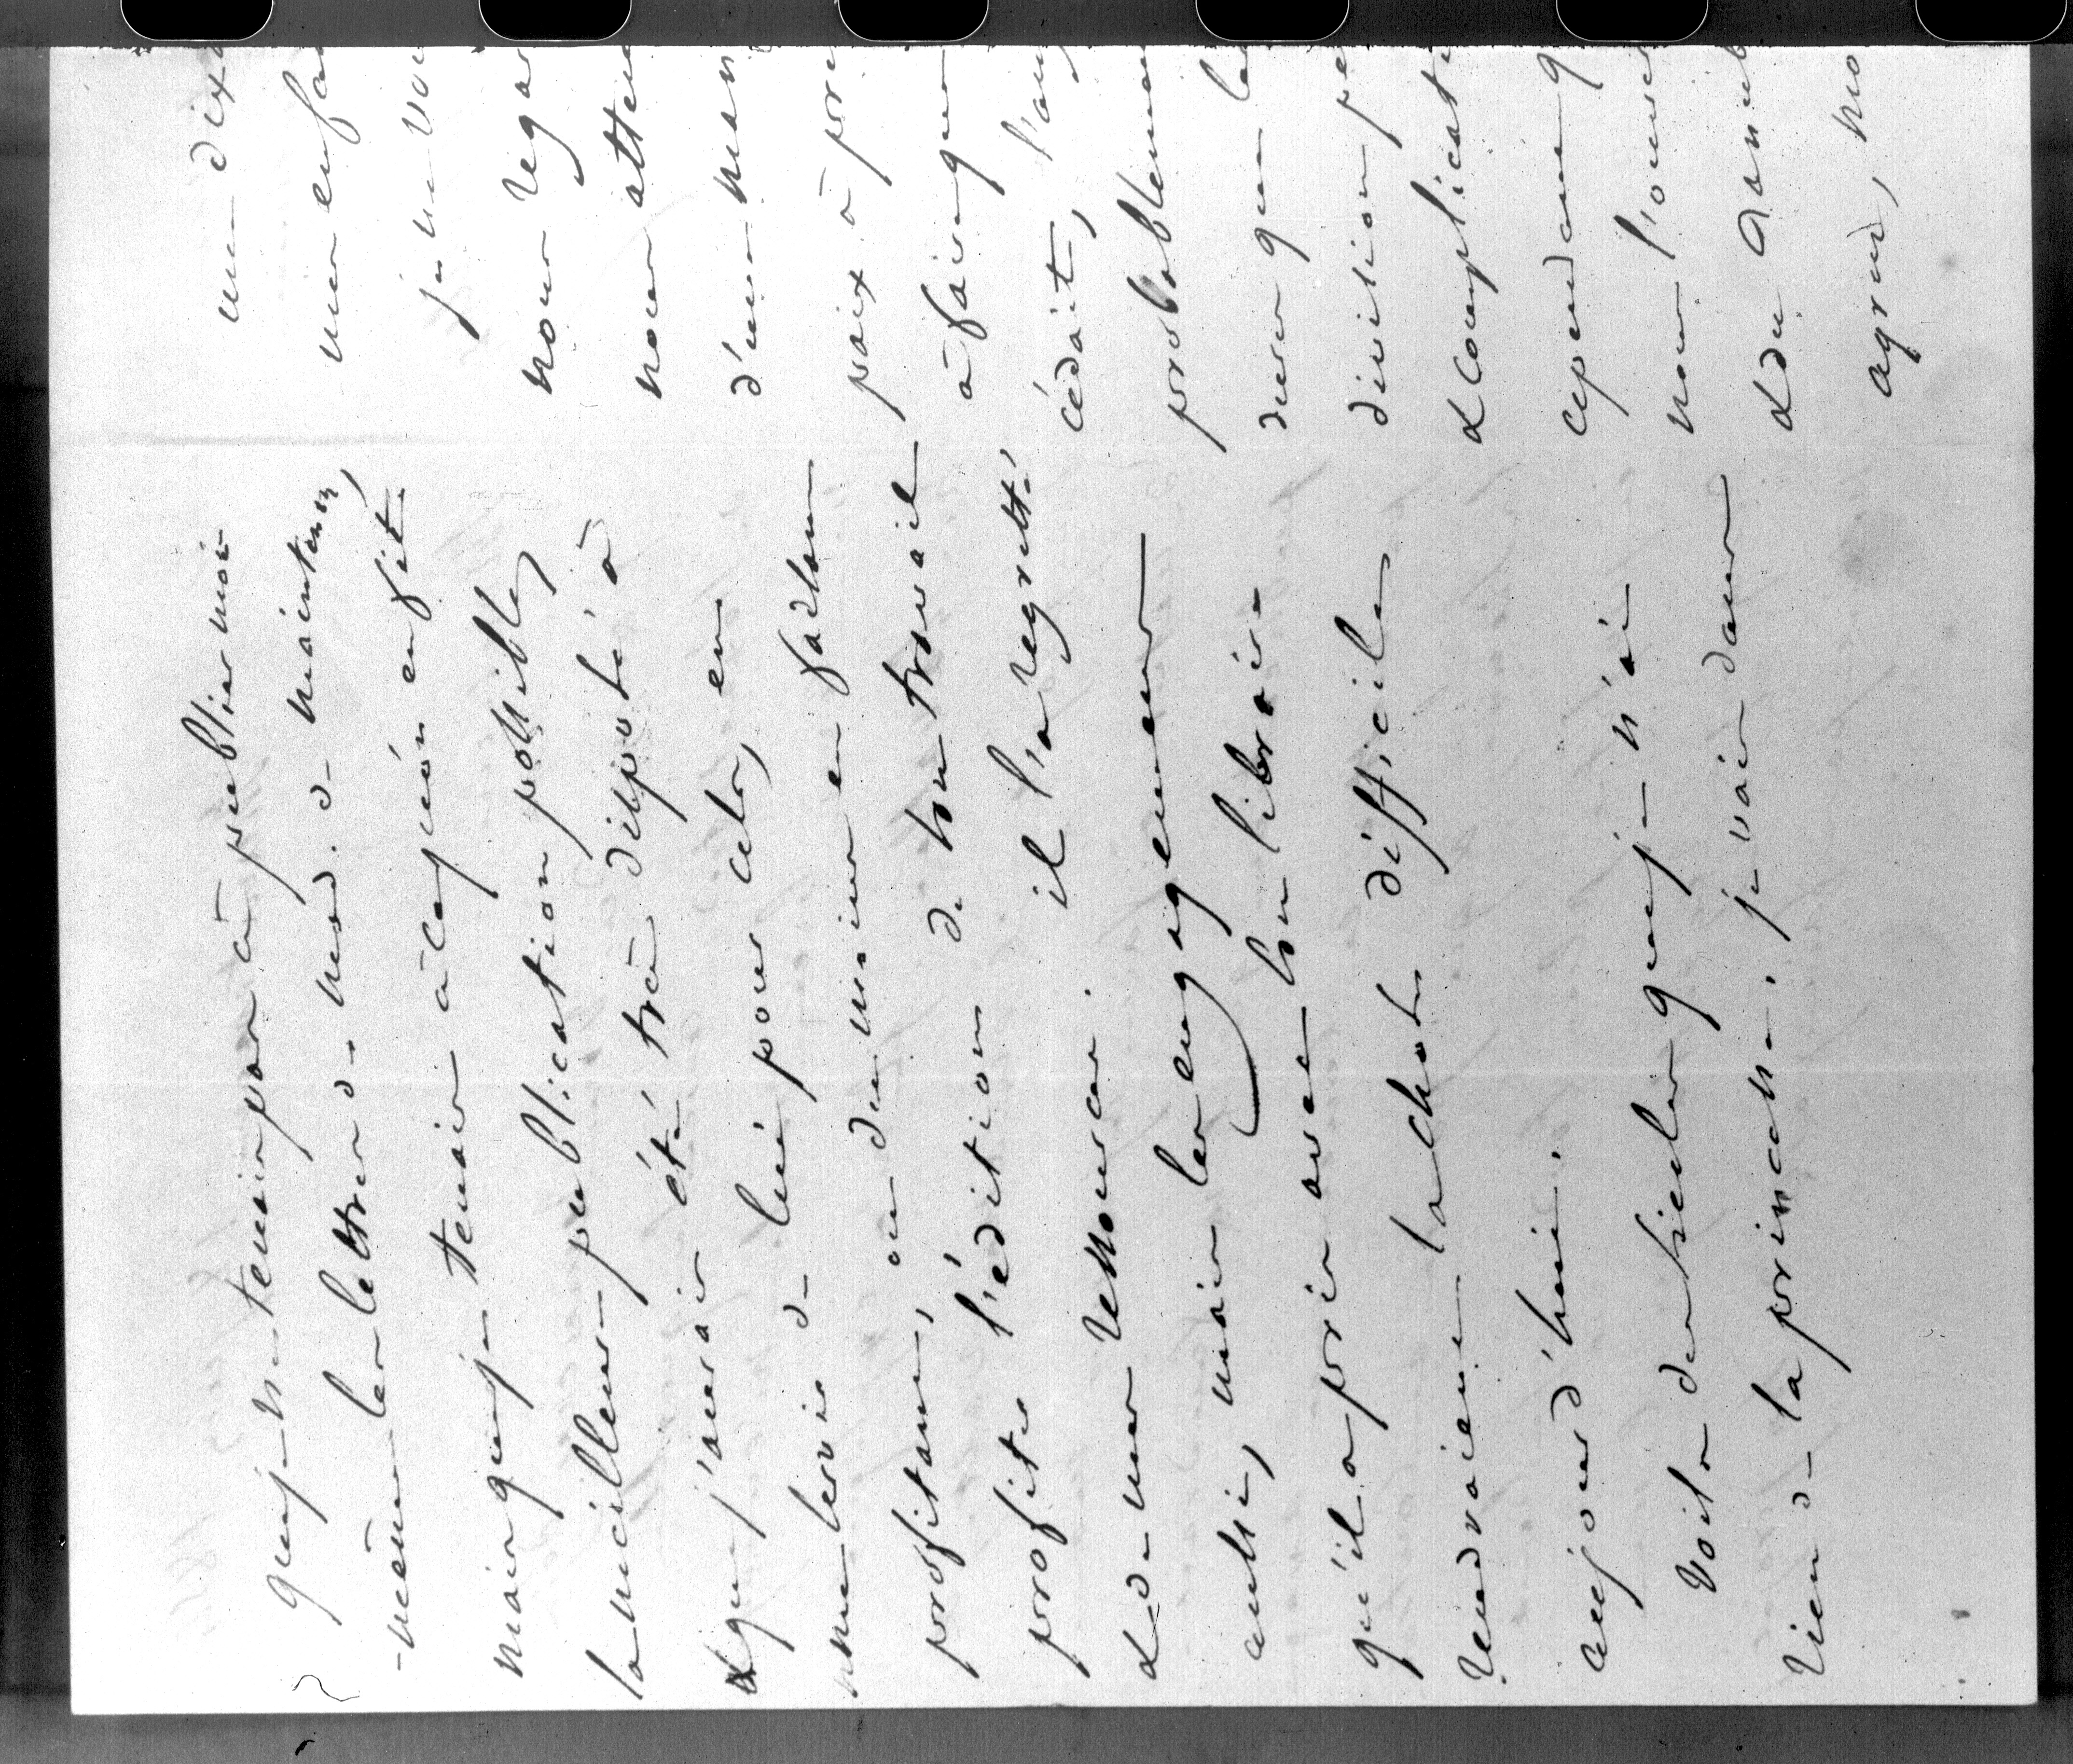 que je ne tenais pas à publier moi
-même les lettres de Mad. de Maintenon,
mais que je tenais à ce qu'on en fît
la meilleure publication possible,
& que j'aurais été très disposé à
me servir de lui pour cela, en
profitant, ou du moins en faisant
profiter l'édition de son travail
& de mes ressources. il l'a regretté
aussi, mais les engagemens
qu'il a pris avec son libraire
rendraient la chose difficile
aujourd'hui.
Voilà des siècles que je n'ai
rien de la princesse. je vais dans
une dixa
mes enfa
je ne vou
nous regar
nous atten
d'une man
paix à pre
à faire que
cédait, l'au
probableme
dura que le
division pe
& complicati
cependant q
nous l'ouver
& du
agrée, mo